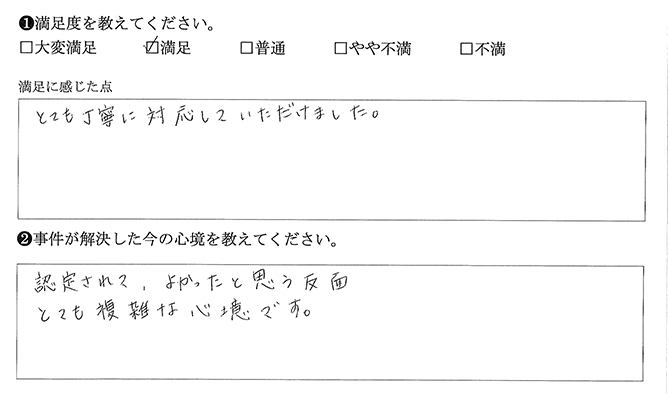 ❶満足度を教えてください。
□大変満足 ☑満足 □普通 □やや不満 □不満
満足に感じた点
とても丁寧に対応していただけました。
❷事件が解決した今の心境を教えてください。
認定されて、よかったと思う反面
とても複雑な心境です。